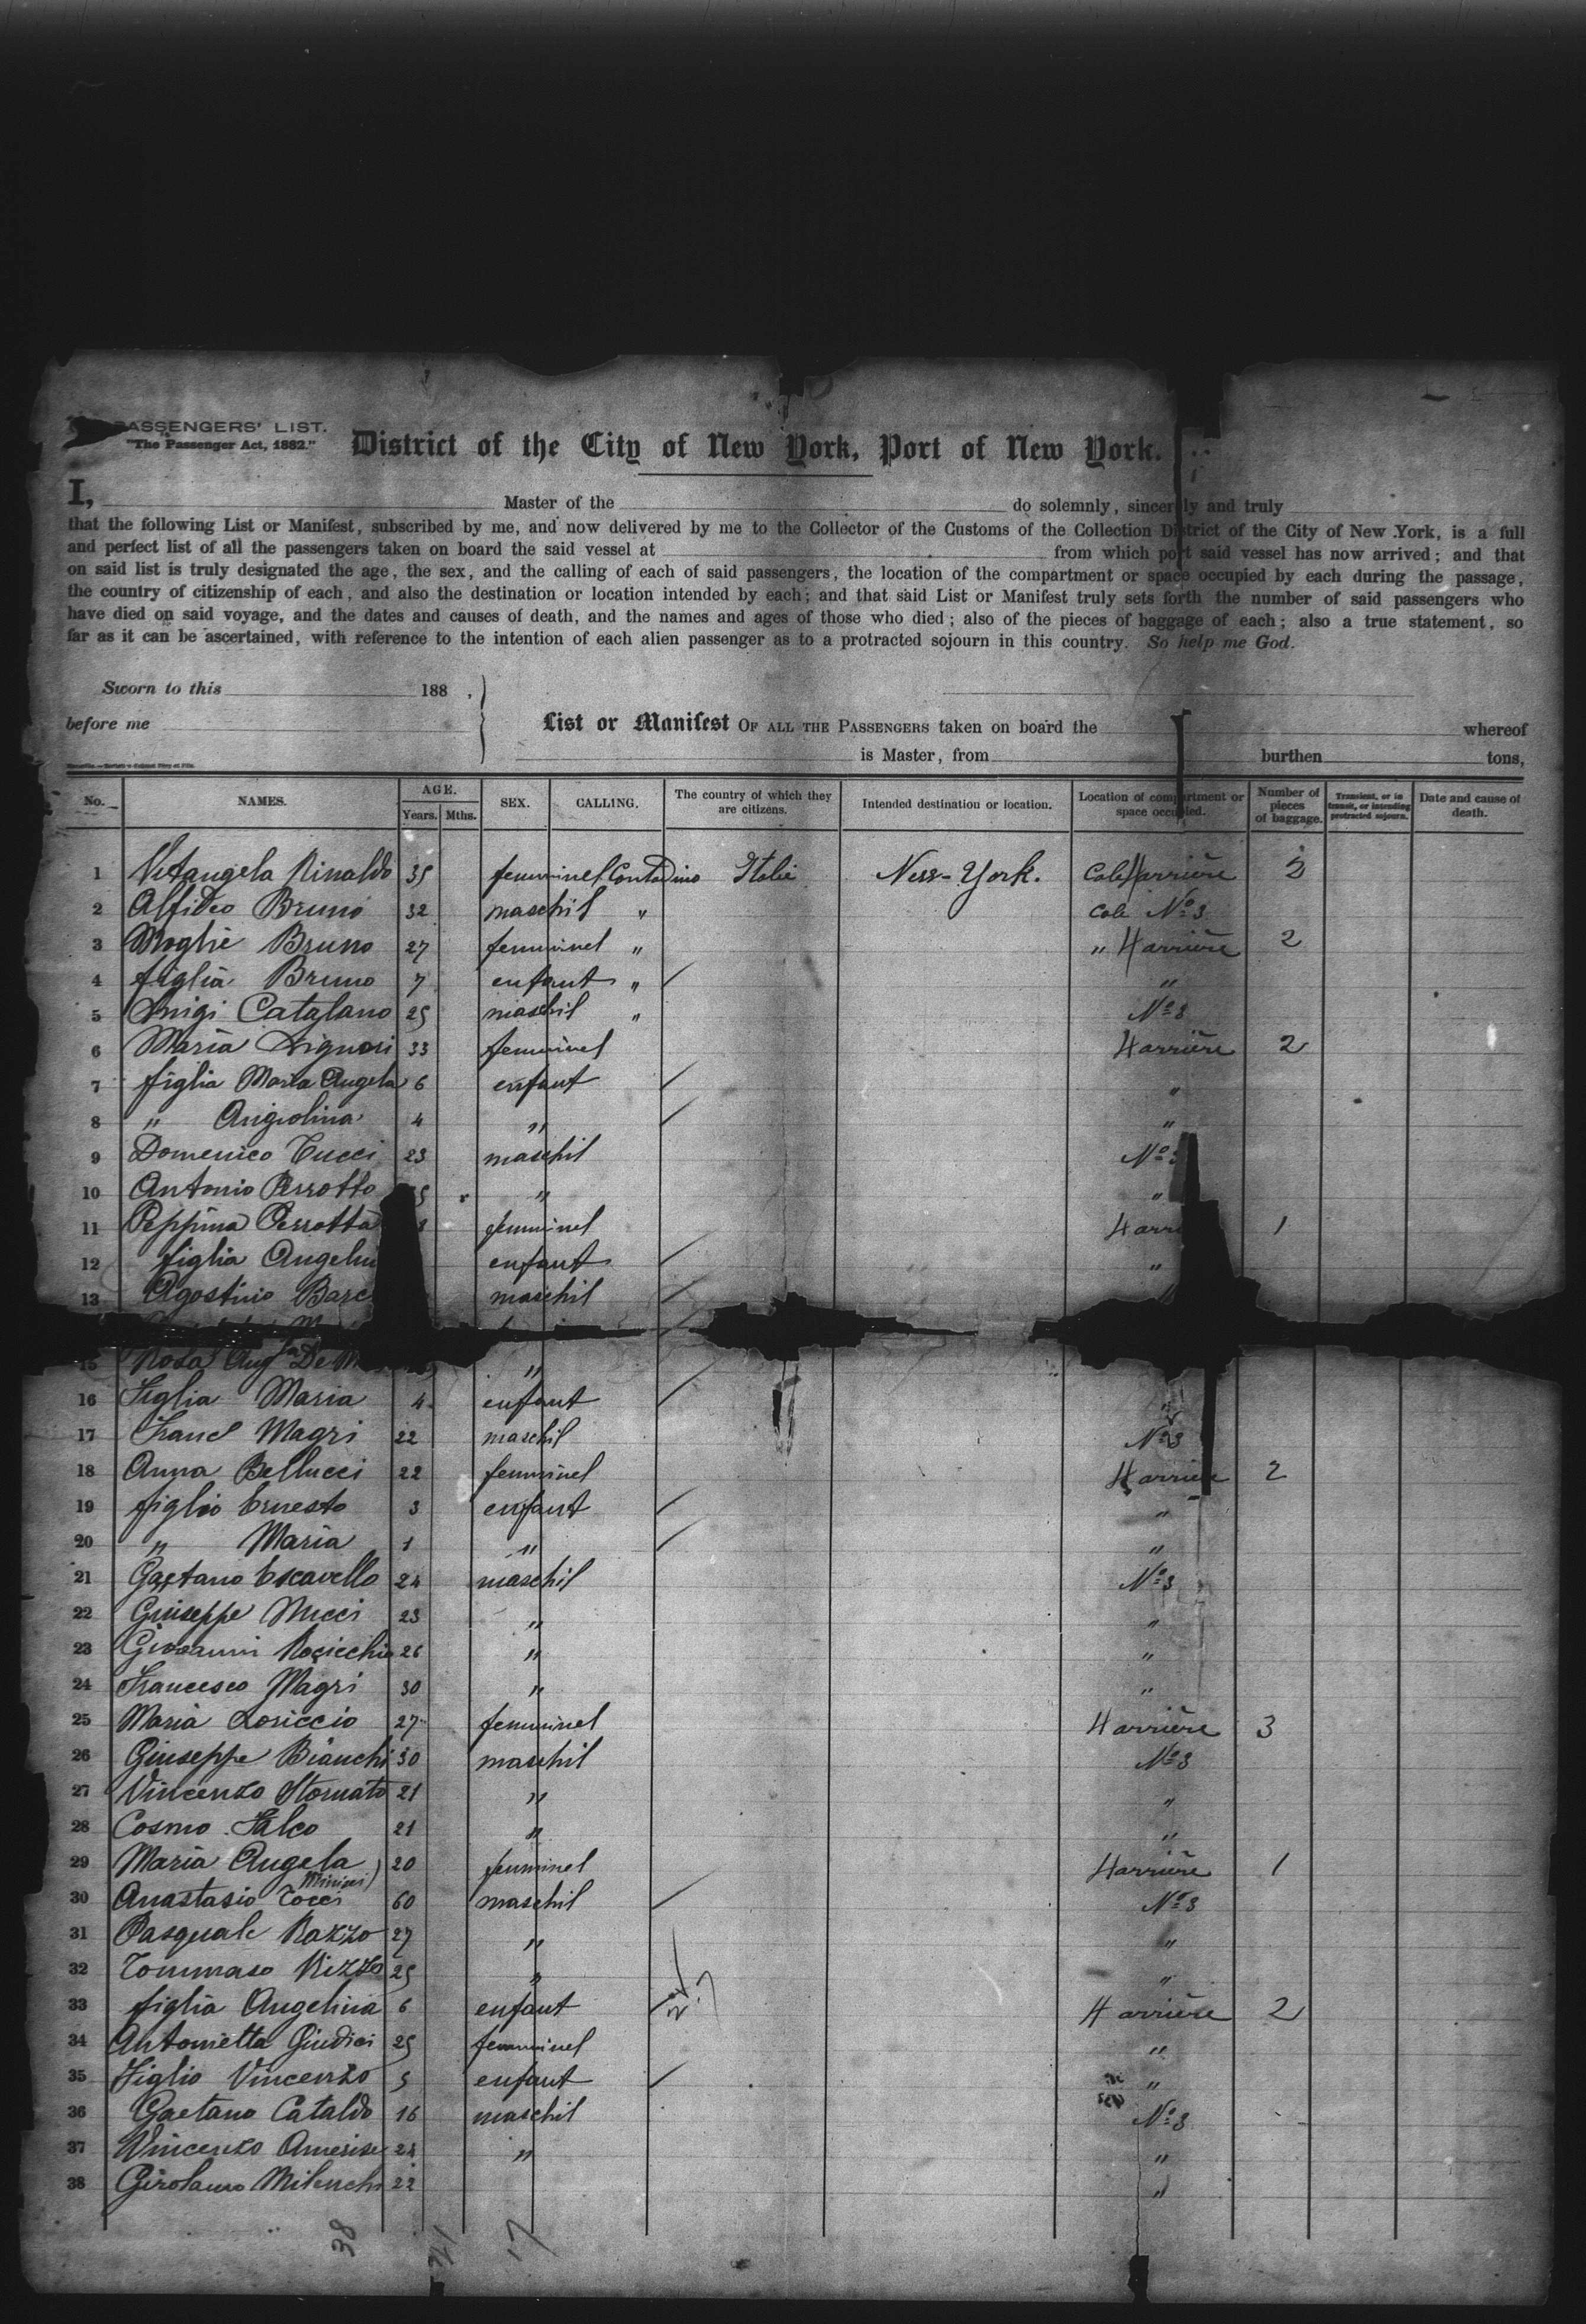 PASSENGERS' LIST.
"The Passenger Act, 1882."
District of the City of New York, Port of New York.
I, Master of the do solemnly, sincerely and truly
that the following List or Manifest, subscribed by me, and now delivered by me to the Collector of the Customs of the Collection District of the City of New York, is a full
and perfect list of all the passengers taken on board the said vessel at from which port said vessel has now arrived; and that
on said list is truly designated the age, the sex, and the calling of each of said passengers, the location of the compartment or space occupied by each during the passage,
the country of citizenship of each, and also the destination or location intended by each; and that said List or Manifest truly sets forth the number of said passengers who
have died on said voyage, and the dates and causes of death, and the names and ages of those who died; also of the pieces of baggage of each; also a true statement, so
far as it can be ascertained, with reference to the intention of each alien passenger as to a protracted sojourn in this country. So help me God.
Sworn to this 188 .
before me
List or Manifest OF ALL THE PASSENGERS taken on board the whereof
is Master, from burthen tons,
No. NAMES. AGE. Years. Mths. SEX. CALLING. The country of which they are citizens. Intended destination or location. Location of compartment or space occupied. Number of pieces of baggage. Transient, or in transit, or intending protracted sojourn. Date and cause of death.
1 Vitangela Rinaldo 35 femminel Contadino Italie New-York. Cale Harrière 2
2 Alfideo Bruno 32 maschil " Cale No 3
3 Moglie Bruno 27 femminel " " Harrière 2
4 figlia Bruno 7 enfant " "
5 Luigi Catalano 25 maschil " No 3
6 Maria Liguori 33 femminel Harrière 2
7 figlia Maria Angela 6 enfant "
8 " Angiolina 4 " "
9 Domenico Tucci 23 maschil No
10 Antonio Perrotto " "
11 Peppina Perrotta femminel 1
12 figlia enfant "
13 Agostino maschil
15 Rosa "
16 Figlia Maria 4 enfant "
17 Franc Magri 22 maschil No 3
18 Anna Bellucci 22 femminel Harrière 2
19 figlio Ernesto 3 enfant "
20 " Maria 1 " "
21 Gaetano Escavello 24 maschil No 3
22 Giuseppe Mucci 23 " "
23 Giovanni Rosicchio 26 " "
24 Francesco Magri 30 " "
25 Maria Loriccio 27 femminel Harrière 3
26 Giuseppe Bianchi 30 maschil No 3
27 Vincenzo Stornato 21 " "
28 Cosmo Falco 21 " "
29 Maria Angela 20 femminel Harrière 1
30 Anastasio Tocci 60 maschil No 3
31 Pasquale Razzo 27 " "
32 Tommaso Rizzo 25 " "
33 figlia Angelina 6 enfant Harrière 2
34 Antonietta Giudici 25 femminel "
35 Figlio Vincenzo 5 enfant "
36 Gaetano Cataldo 16 maschil No 3
37 Vincenzo Amerise 24 " "
38 Girolamo Milenchi 22 "
38 17